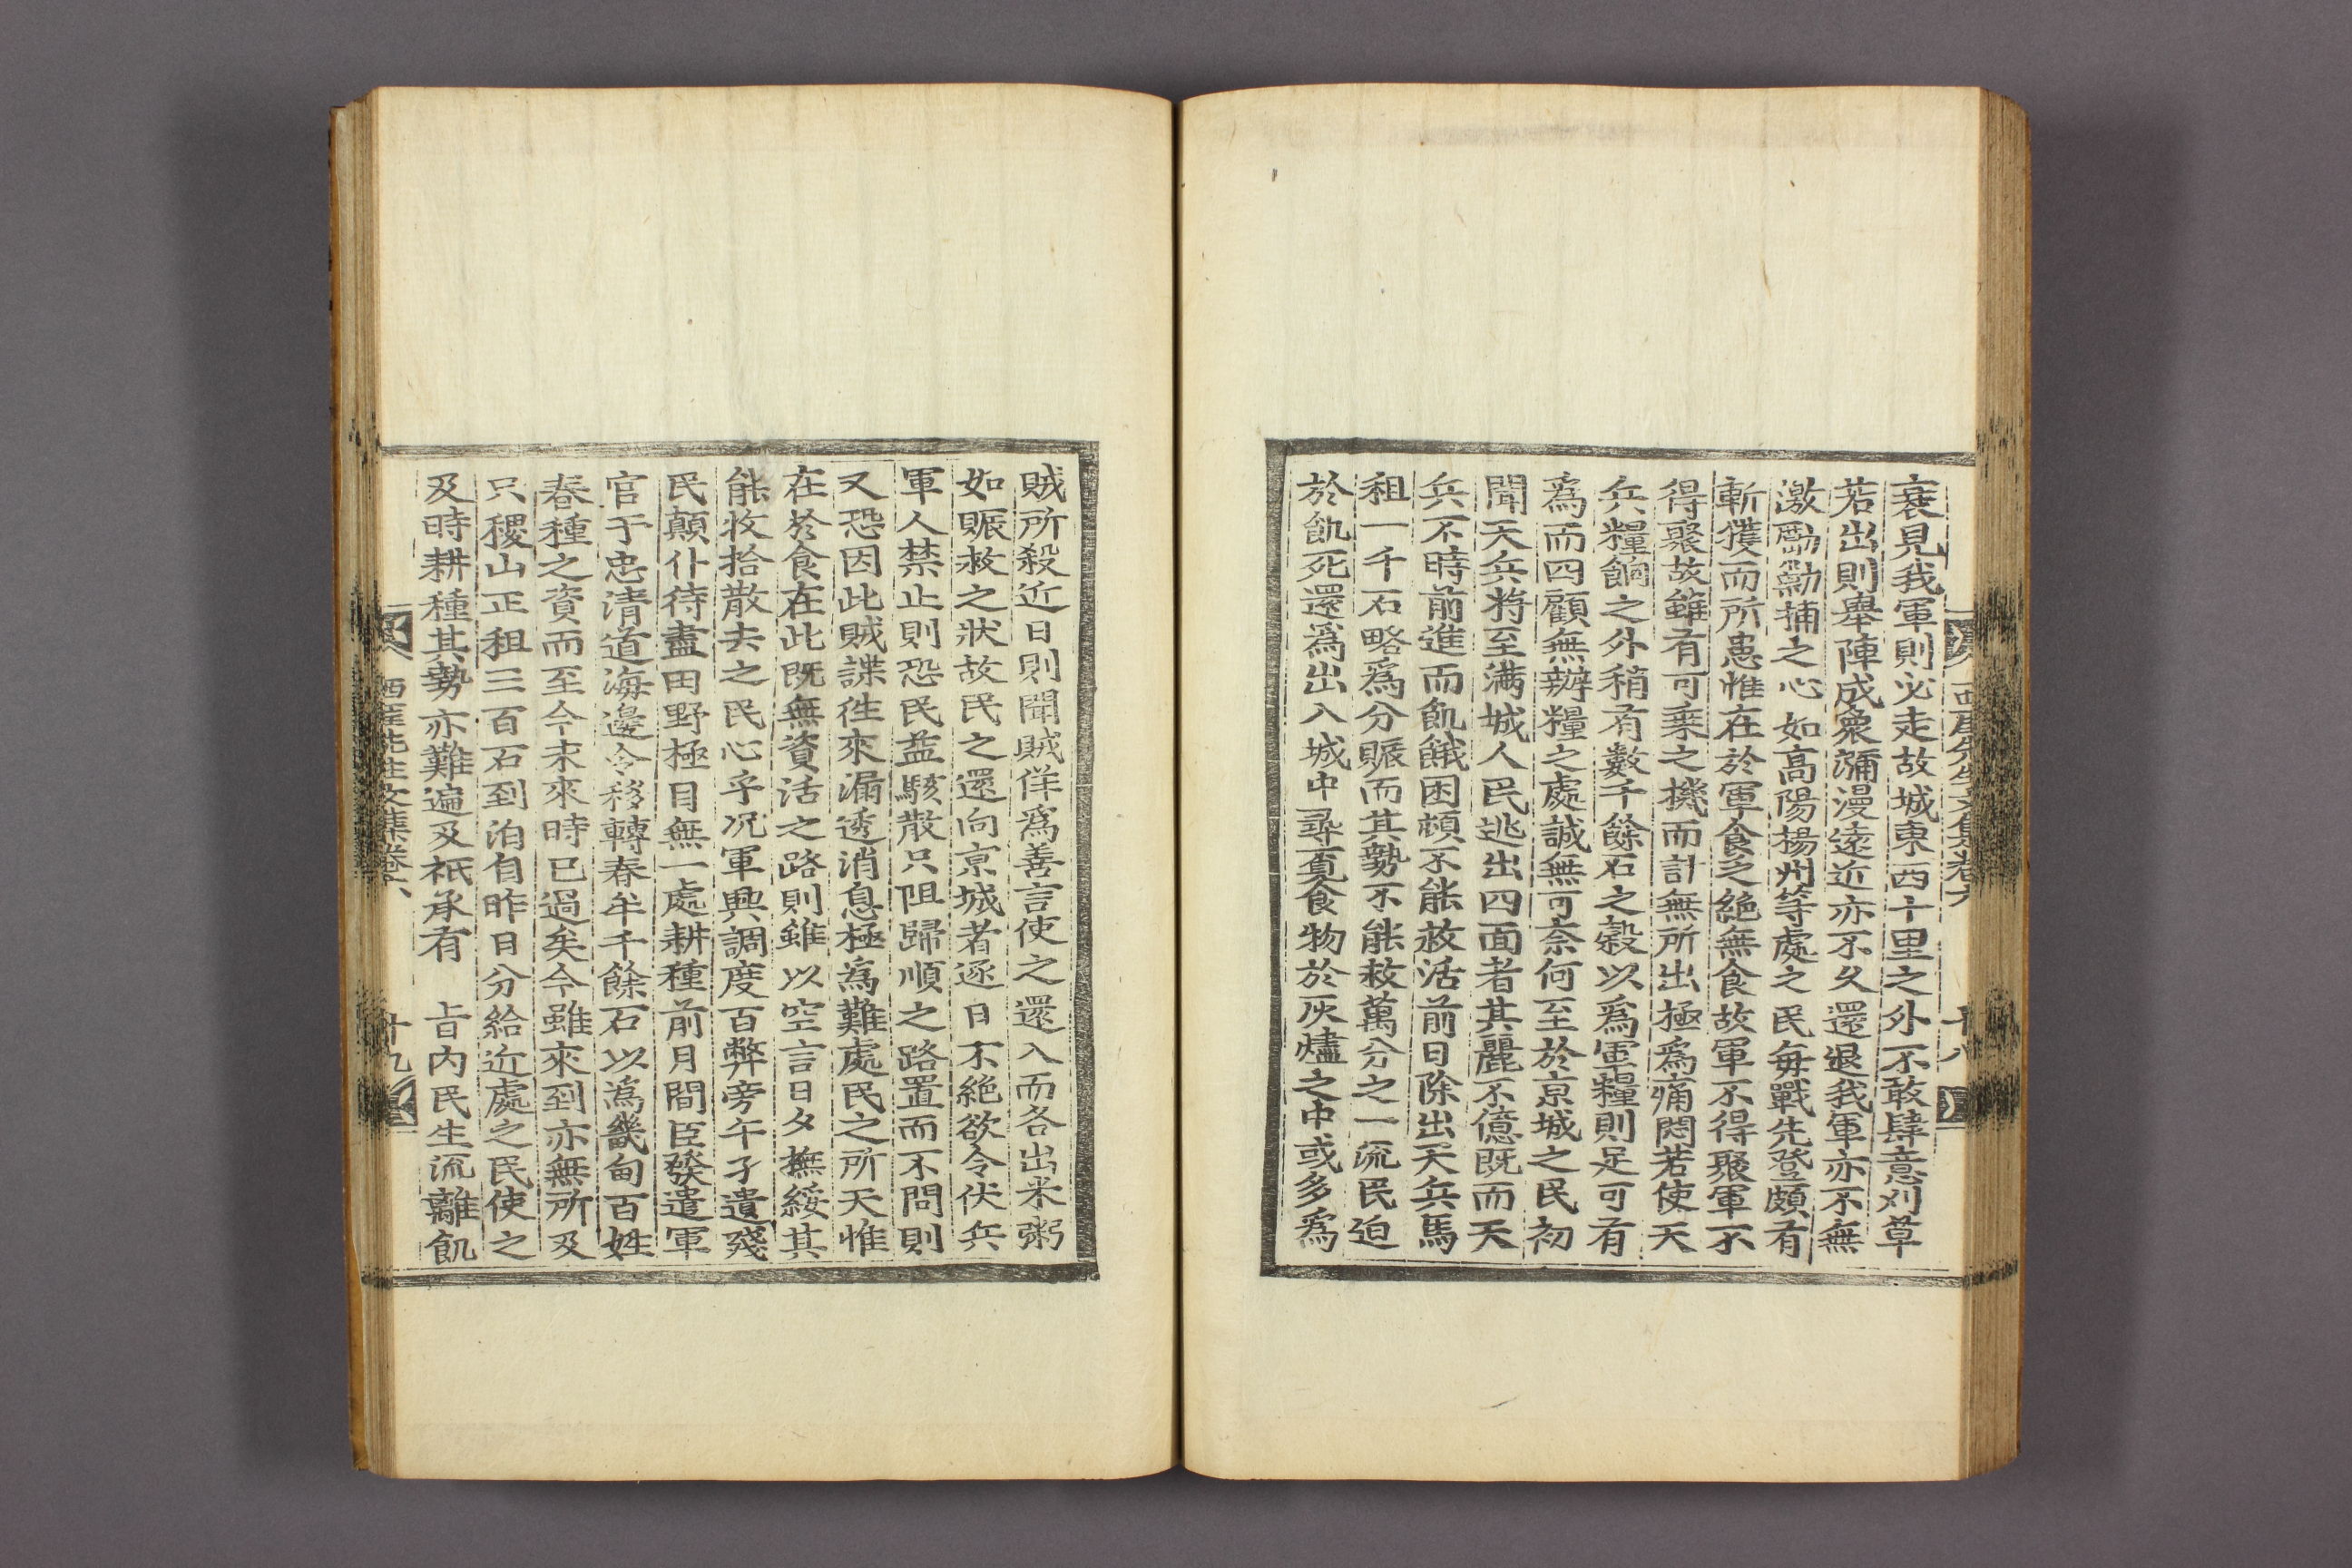 衰見我軍則必走故城東西十里之外不敢肆意刈草
若出則舉陣成衆瀰漫遠近亦不久還退我軍亦不無
激勵勦捕之心如高陽揚州等處之民每戰先登頗有
斬獲而所患惟在於軍食乏絶無食故軍不得聚軍不
得聚故雖有可乘之機而計無所出極爲痛悶若使天
兵糧餉之外稍有數千餘石之穀以爲軍糧則足可有
爲而四顧無辦糧之處誠無可奈何至於京城之民初
聞天兵將至滿城人民逃出四面者其麗不億既而天
兵不時前進而飢餓困頓不能救活前日除出天兵馬
租一千石略爲分賑而其勢不能救萬分之一流民迫
於飢死還爲出入城中尋覓食物於灰燼之中或多爲
西厓先生文集卷六 十八
賊所殺近日則聞賊佯爲善言使之還入而各出米粥
如賑救之狀故民之還向京城者逐日不絶欲令伏兵
軍人禁止則恐民益駭散只阻歸順之路置而不問則
又恐因此賊諜徃來漏透消息極爲難處民之所天惟
在於食在此既無資活之路則雖以空言日夕撫綏其
能收拾散去之民心乎况軍興調度百弊旁午孑遺殘
民顛仆待盡田野極目無一處耕種前月間臣發遣軍
官于忠清道海邊令移轉春牟千餘石以爲畿甸百姓
春種之資而至今未來時已過矣今雖來到亦無所及
只稷山正租三百石到泊自昨日分給近處之民使之
及時耕種其勢亦難遍及祇承有 旨內民生流離飢
西厓先生文集卷六 十九